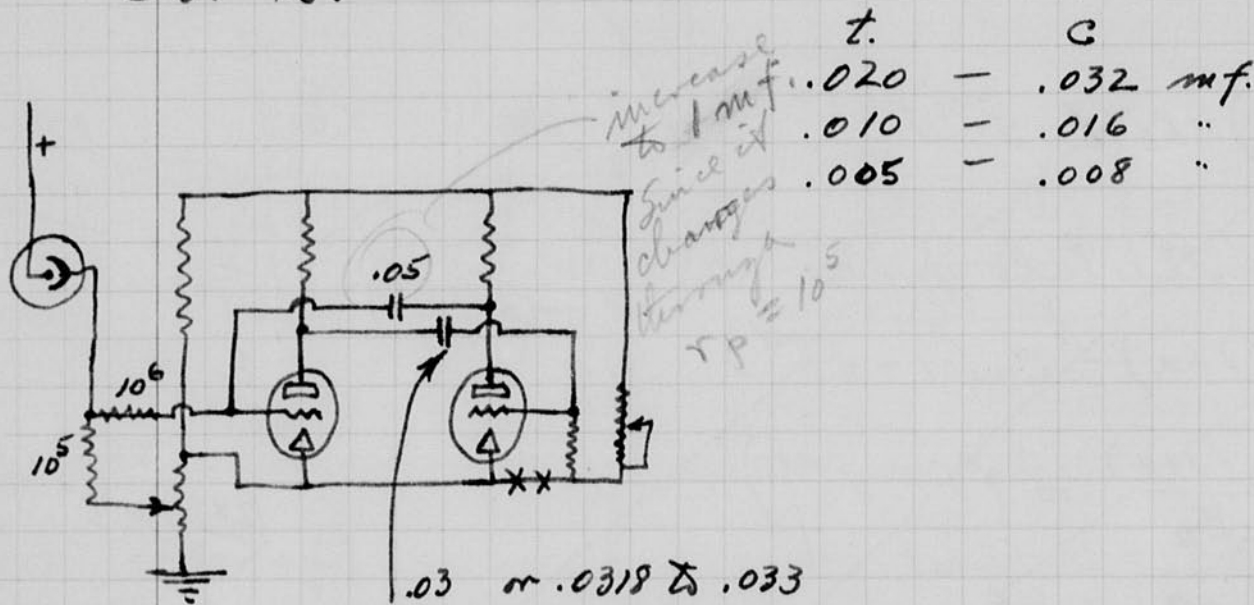 t. C
.020 — .032 mf.
.010 — .016 "
.005 — .008 "
increase
to 1 mf.
Since it
changes
through a
rp = 10⁵
+
.05
10⁶
10⁵
.03 or .0318 to .033